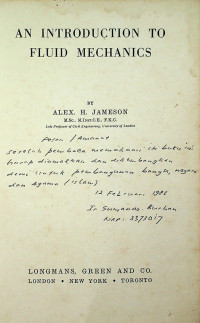 AN INTRODUCTION TO
FLUID MECHANICS
BY
ALEX. H. JAMESON
M.Sc., M.Inst.C.E., F.K.C.
Late Professor of Civil Engineering, University of London
Pesan / Amanat
setelah pembaca memahami isi buku ini
harap diamalkan dan dikembangkan
demi untuk pembangunan bangsa, negara
dan Agama (Islam)
12 Februari
Ir
LONGMANS, GREEN AND CO.
LONDON • NEW YORK • TORONTO